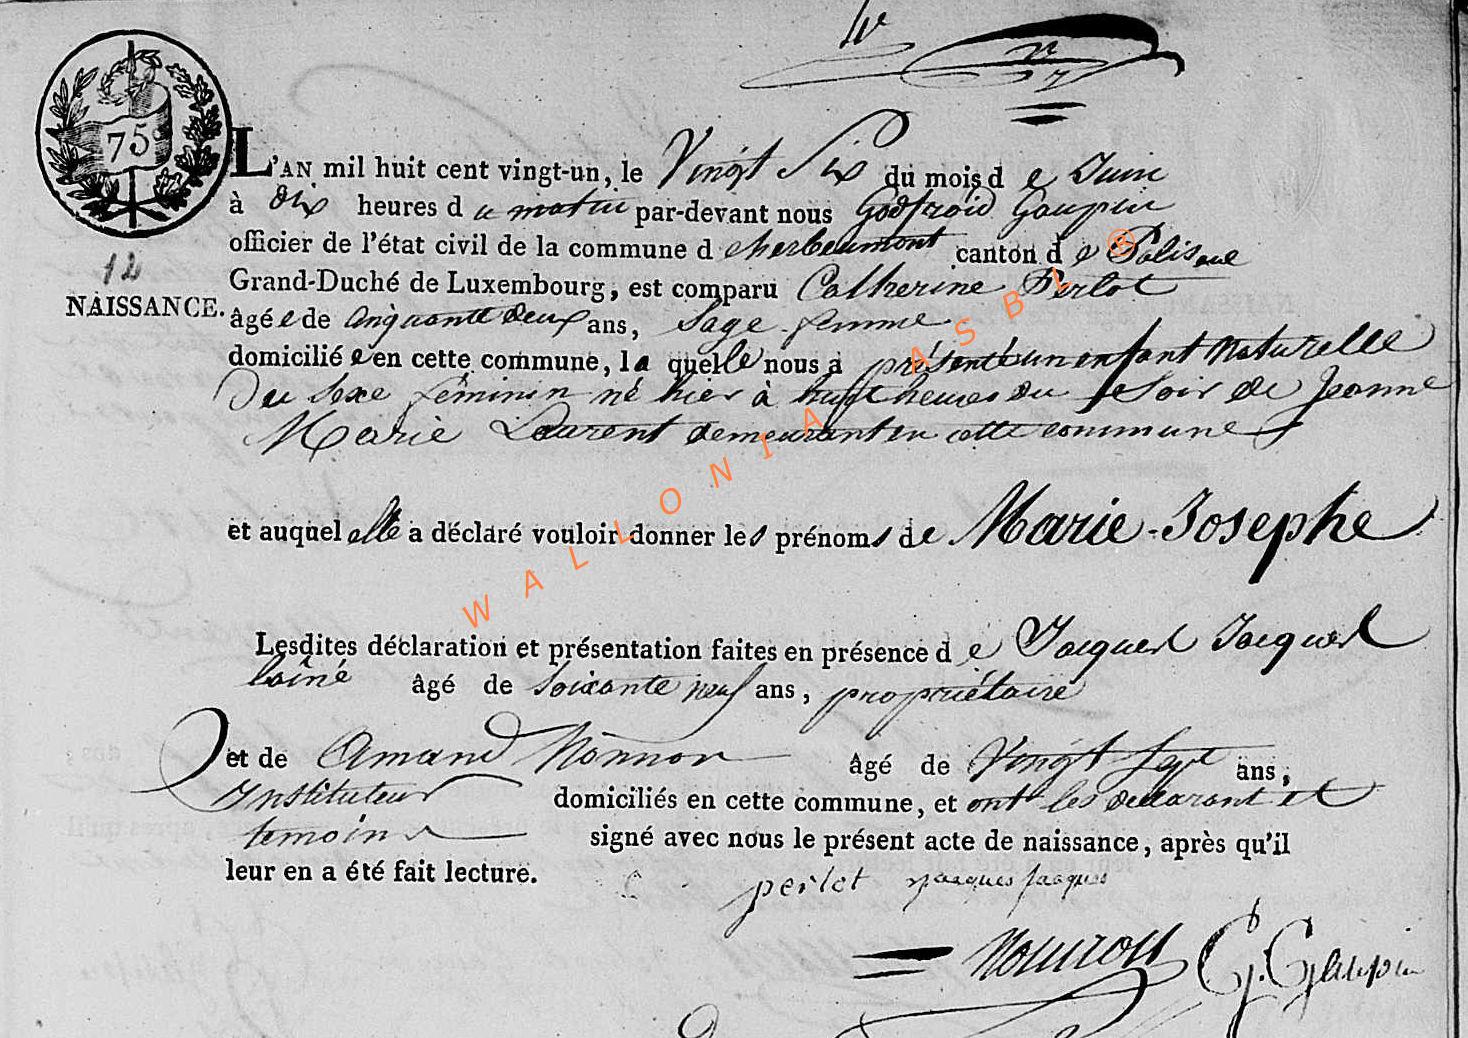 75c
L'AN mil huit cent vingt-un, le Vingt Six du mois de Juin
à dix heures du matin par-devant nous Godfroid Gaupin
officier de l'état civil de la commune d'herbeumont canton de Paliseul
12
NAISSANCE.
Grand-Duché de Luxembourg, est comparu Catherine Perlot
âgée de cinquante deux ans, Sage-femme
domiciliée en cette commune, laquelle nous a présenté un enfant naturelle
Du Sexe féminin né hier à huit heures du Soir de Jeanne
Marie Laurent demeurant en cette commune
et auquel elle a déclaré vouloir donner les prénoms de Marie-Josephe
Lesdites déclaration et présentation faites en présence de Jacques Jacques
lainé âgé de Soixante neuf ans, propriétaire
et de Amand âgé de Vingt Sept ans,
Instituteur domiciliés en cette commune, et ont les déclarant et
temoins signé avec nous le présent acte de naissance, après qu'il
leur en a été fait lecture.
C. perlot jacques jacques
G. Gaupin
WALLONIA ASBL ®